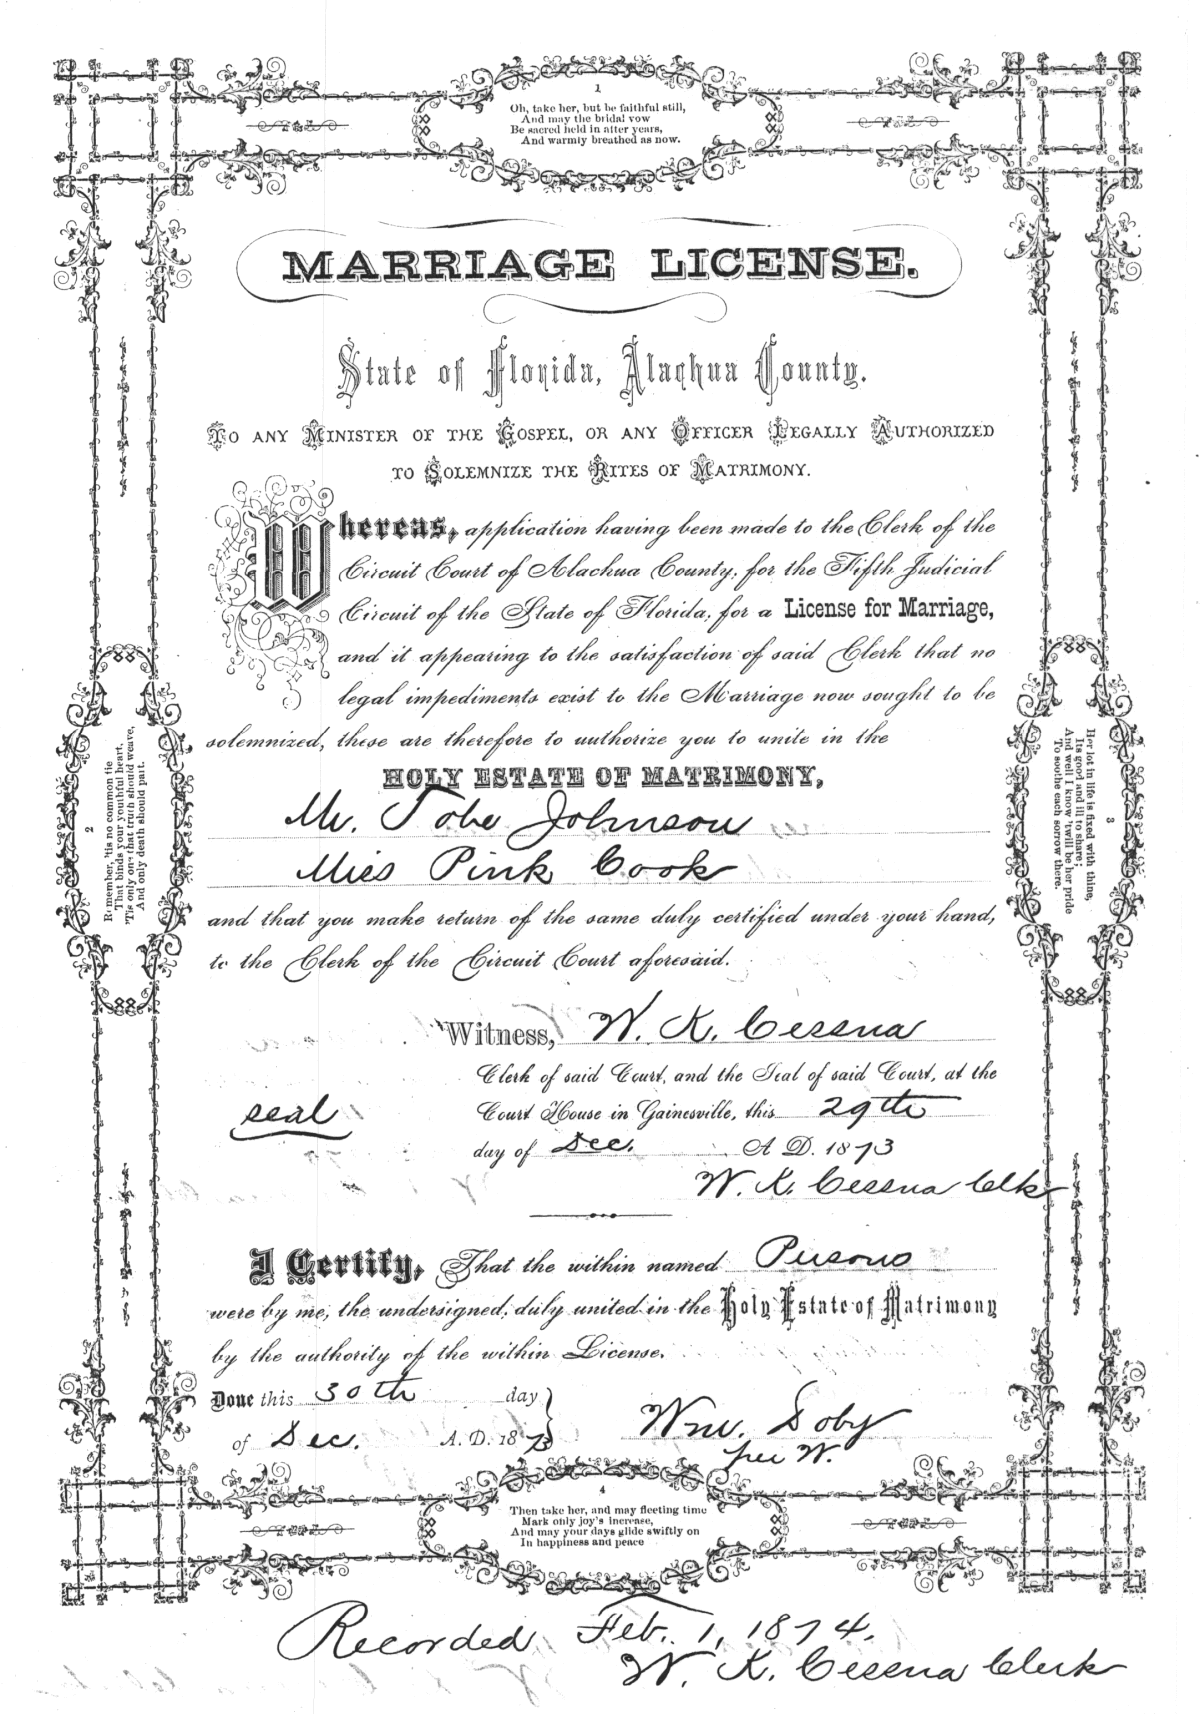 1
Oh, take her, but be faithful still,
And may the bridal vow
Be sacred held in after years,
And warmly breathed as now.
MARRIAGE LICENSE.
State of Florida, Alachua County.
TO ANY MINISTER OF THE GOSPEL, OR ANY OFFICER LEGALLY AUTHORIZED
TO SOLEMNIZE THE RITES OF MATRIMONY.
Whereas, application having been made to the Clerk of the
Circuit Court of Alachua County, for the Fifth Judicial
Circuit of the State of Florida, for a License for Marriage,
and it appearing to the satisfaction of said Clerk that no
legal impediments exist to the Marriage now sought to be
solemnized, these are therefore to authorize you to unite in the
HOLY ESTATE OF MATRIMONY,
Mr. Tobe Johnson
Miss Pink Cook
and that you make return of the same duly certified under your hand,
to the Clerk of the Circuit Court aforesaid.
2
Remember, 'tis no common tie
That binds your youthful heart,
'Tis only one that truth should weave,
And only death should part.
3
Her lot in life is fixed with thine,
Its good and ill to share;
And well I know 'twill be her pride
To soothe each sorrow there.
Witness, W. K. Cessna
Clerk of said Court, and the Seal of said Court, at the
seal
Court House in Gainesville, this 29th
day of Dec. A. D. 1873
W. K. Cessna Clk
I Certify, That the within named Persons
were by me, the undersigned, duly united in the Holy Estate of Matrimony
by the authority of the within License.
Done this 30th day
of Dec. A. D. 1873
Wm. Doby
per W.
4
Then take her, and may fleeting time
Mark only joy's increase,
And may your days glide swiftly on
In happiness and peace
Recorded Feb. 1, 1874.
W. K. Cessna Clerk